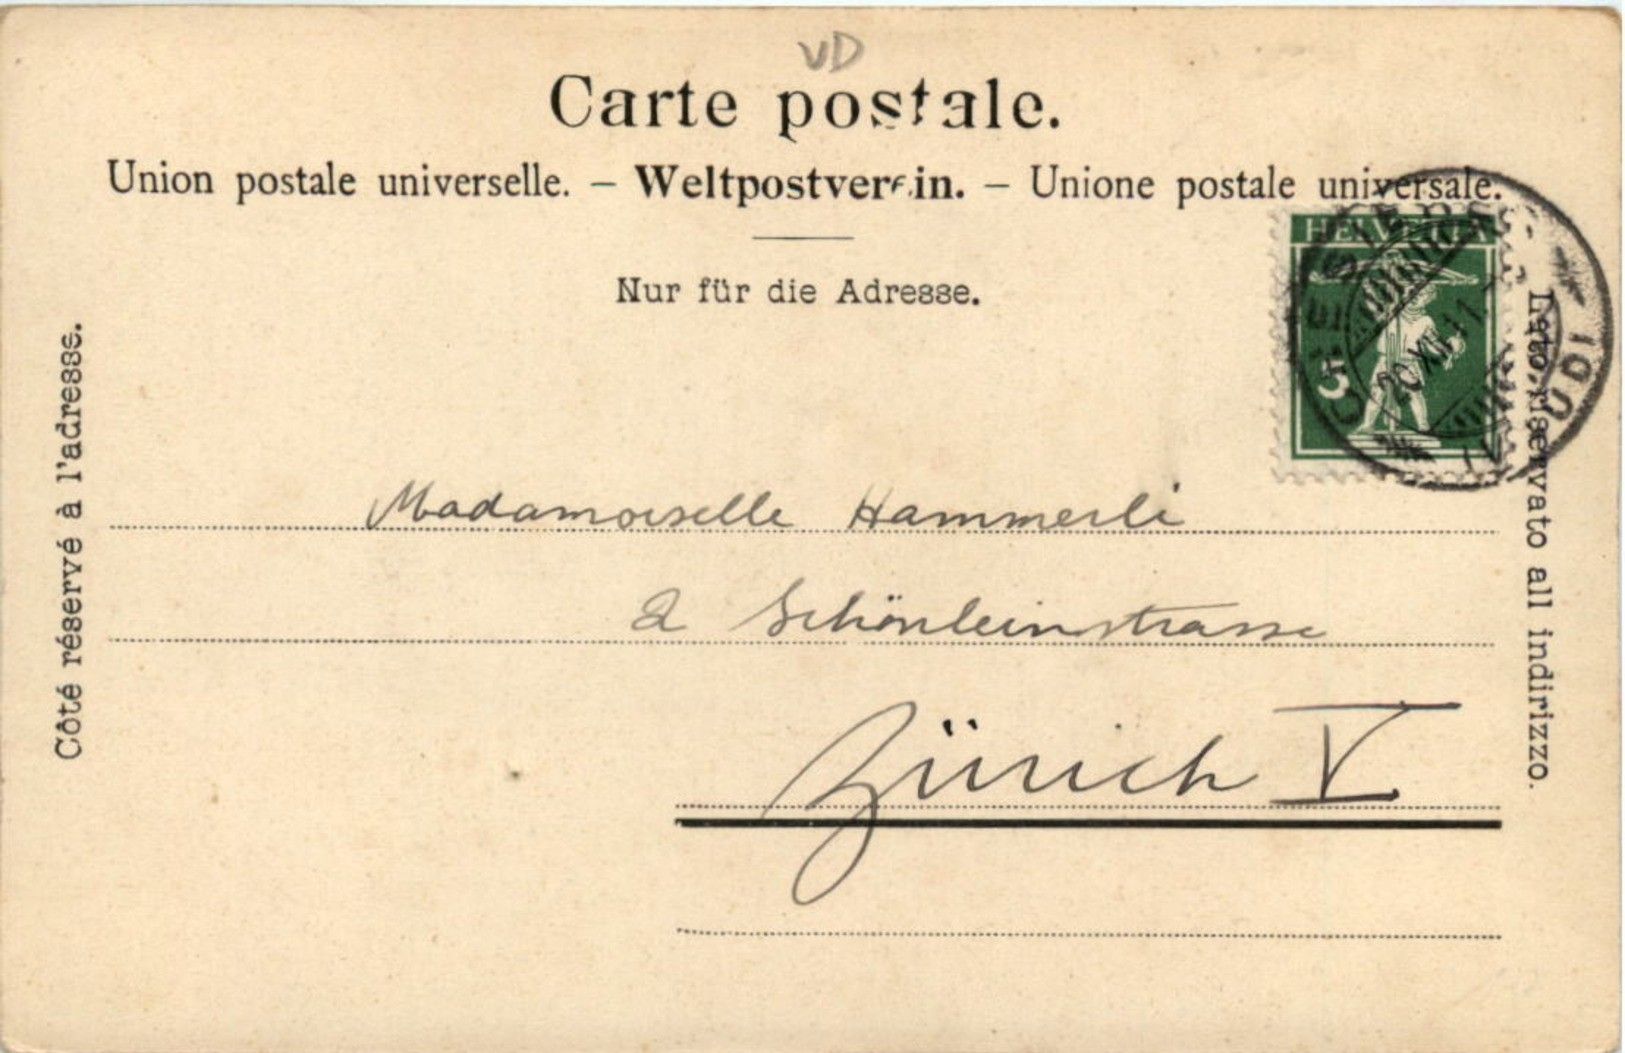 VD
Carte postale.
Union postale universelle. – Weltpostverein. – Unione postale universale.
Nur für die Adresse.
HELVETIA
5
20.XII.11
Côté réservé à l'adresse.
Lato riservato all indirizzo.
Madamoiselle Hammerli
2 Schönleinstrasse
Zürich V.